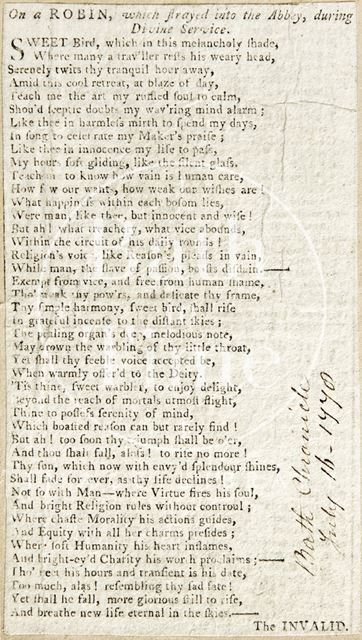 On a ROBIN, which strayed into the Abbey, during
Divine Service.
SWEET Bird, which in this melancholy shade,
Where many a trav'ller rests his weary head,
Serenely twits thy tranquil hour away,
Amid this cool retreat, at blaze of day,
Teach me the art my ruffled soul to calm,
Shou'd sceptic doubts my wav'ring mind alarm;
Like thee in harmless mirth to spend my days,
In song to celebrate my Maker's praise;
Like thee in innocence my life to pass,
My hours soft gliding, like the silent glass.
Teach me to know how vain is human care,
How few our wants, how weak our wishes are!
What happiness within each bosom lies,
Were man, like thee, but innocent and wise!
But ah! what treachery, what vice abounds,
Within the circuit of his daily rounds!
Religion's voice like Reason's, pleads in vain,
While man, the slave of passion, boasts disdain.—
Exempt from vice, and free from human shame,
Tho' weak thy pow'rs, and delicate thy frame,
Thy simple harmony, sweet bird, shall rise
In grateful incense to the distant skies;
The pealing organ's deep, melodious note,
May drown the warbling of thy little throat,
Yet shall thy feeble voice accepted be,
When warmly offer'd to the Deity.
'Tis thine, sweet warbler, to enjoy delight,
Beyond the reach of mortals utmost flight,
Thine to possess serenity of mind,
Which boasted reason can but rarely find!
But ah! too soon thy triumph shall be o'er,
And thou shalt fall, alas! to rise no more!
Thy sun, which now with envy'd splendour shines,
Shall fade for ever, as thy life declines!
Not so with Man—where Virtue fires his soul,
And bright Religion rules without controul;
Where chaste Morality his actions guides,
And Equity with all her charms presides;
Where soft Humanity his heart inflames,
And bright-ey'd Charity his worth proclaims;—
Tho' fleet his hours and transient is his date,
Too much, alas! resembling thy sad fate!
Yet shall he fall, more glorious still to rise,
And breathe new life eternal in the skies.—
The INVALID.
Bath Chronicle
July 16—1770